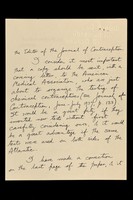 the Editor of the Journal of Contraception
I consider it most important
that a copy should be sent with a
covering letter to the American
Medical Association, who are just
about to organize the testing of
chemical contraceptives (see Journal of
Contraception, June-July 1937, p. 133).
It would be a great pity if they
were to start without
carefully considering ours: it would
be a great advantage if the same
tests were used on both sides of the
Atlantic.
I have made a correction
on the last page of the paper, &